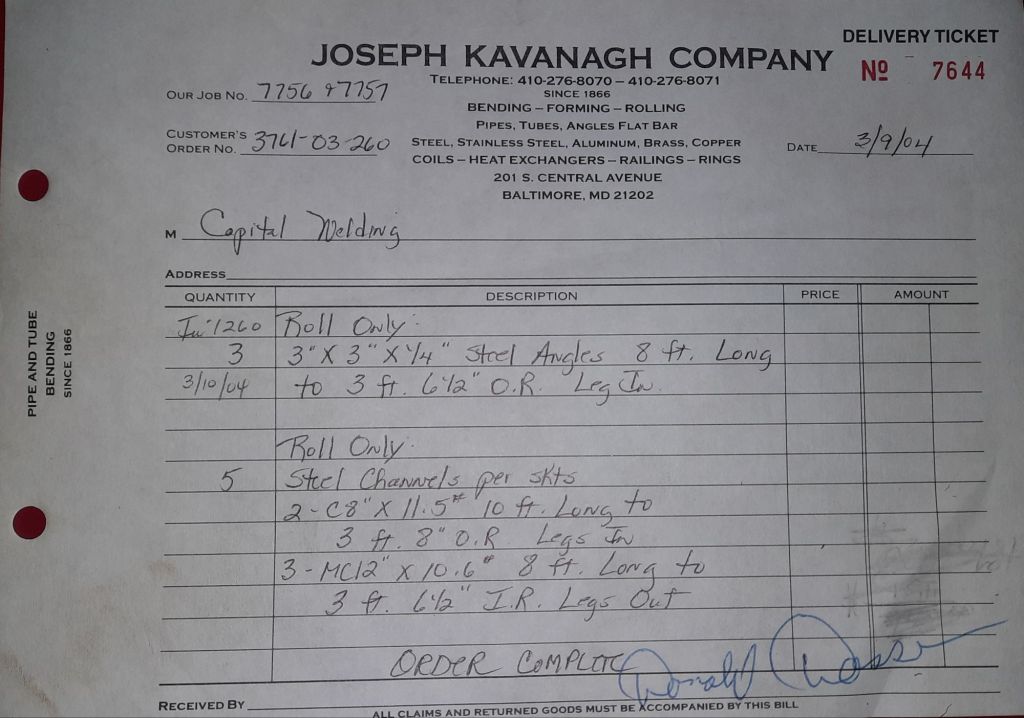 DELIVERY TICKET
JOSEPH KAVANAGH COMPANY
Nº 7644
TELEPHONE: 410-276-8070 – 410-276-8071
SINCE 1866
OUR JOB NO. 7756 & 7757
BENDING – FORMING – ROLLING
PIPES, TUBES, ANGLES FLAT BAR
CUSTOMER'S ORDER NO. 3761-03-260
STEEL, STAINLESS STEEL, ALUMINUM, BRASS, COPPER
DATE 3/9/04
COILS – HEAT EXCHANGERS – RAILINGS – RINGS
201 S. CENTRAL AVENUE
BALTIMORE, MD 21202
M Capital Welding
ADDRESS
QUANTITY DESCRIPTION PRICE AMOUNT
1260 Roll Only:
3 3" X 3" X 1/4" Steel Angles 8 ft. Long
3/10/04 to 3 ft. 6 1/2" O.R. Leg In
Roll Only:
5 Steel Channels per skts
2 - C8" X 11.5# 10 ft. Long to
3 ft. 8" O.R. Legs In
3 - MC12" X 10.6# 8 ft. Long to
3 ft. 6 1/2" I.R. Legs Out
ORDER COMPLETE
Donald
RECEIVED BY
ALL CLAIMS AND RETURNED GOODS MUST BE ACCOMPANIED BY THIS BILL
PIPE AND TUBE
BENDING
SINCE 1866